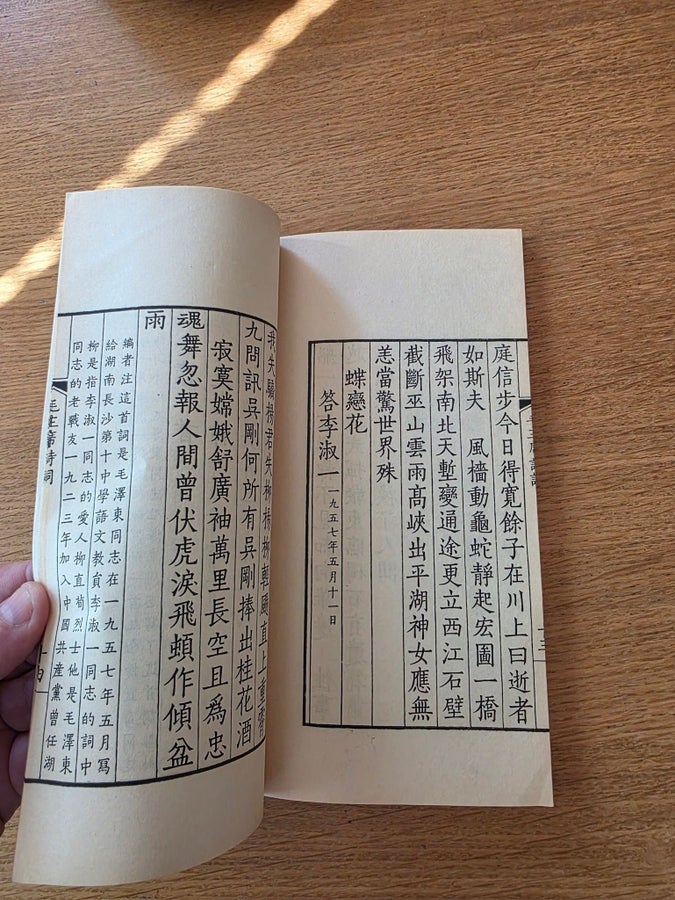 庭信步今日得寬餘子在川上曰逝者
如斯夫　風檣動龜蛇靜起宏圖一橋
飛架南北天塹變通途更立西江石壁
截斷巫山雲雨髙峽出平湖神女應無
恙當驚世界殊
蝶戀花
答李淑一　一九五七年五月十一日
我失驕楊君失柳楊柳輕颺直上重霄
九問訊吳剛何所有吳剛捧出桂花酒
寂寞嫦娥舒廣袖萬里長空且爲忠
魂舞忽報人間曾伏虎淚飛頓作傾盆
雨
編者注這首詞是毛澤東同志在一九五七年五月寫
給湖南長沙第十中學語文教員李淑一同志的詞中
柳是指李淑一同志的愛人柳直荀烈士他是毛澤東
同志的老戰友一九二三年加入中國共產黨曾任湖
毛主席詩詞